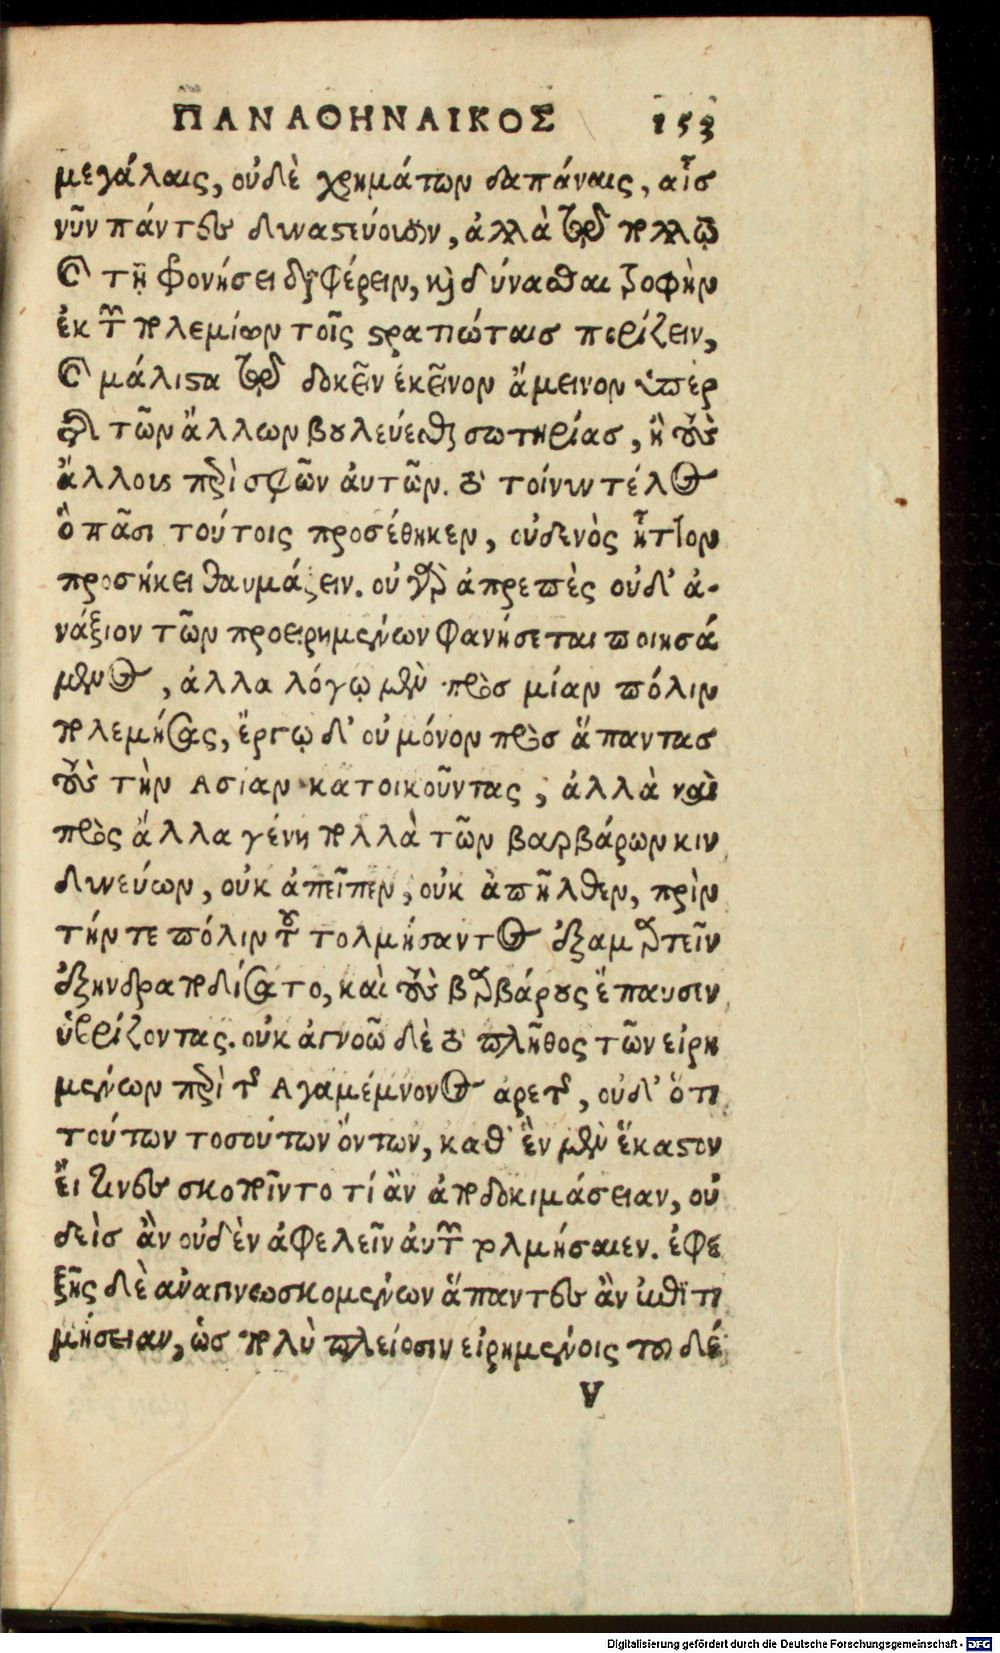 ΠΑΝΑΘΗΝΑΙΚΟΣ 153
μεγάλαις, οὐδὲ χρημάτων δαπάναις, αἷσ
νῦν πάντες δυναστεύουσιν, ἀλλὰ τῷ πολλῷ
καὶ τῇ φρονήσει διαφέρειν, καὶ δύνασθαι τροφὴν
ἐκ τῶν πολεμίων τοῖς στρατιώταισ πορίζειν,
καὶ μάλιστα τῷ δοκεῖν ἐκεῖνον ἄμεινον ὑπὲρ
τῆς τῶν ἄλλων βουλεύεσθαι σωτηρίας, ἢ τοὺς
ἄλλους περὶ σφῶν ἀυτῶν. τὸ τοίνυν τέλος
ὃ πᾶσι τούτοις προσέθηκεν, οὐδενὸς ἧττον
προσήκει θαυμάζειν. οὐ γὰρ ἀπρεπὲς οὐδ' ἀ-
νάξιον τῶν προειρημένων φανήσεται ποιησά
μενος, ἀλλα λόγῳ μὲν πρὸσ μίαν πόλιν
πολεμήσας, ἔργῳ δ' οὐ μόνον πρὸσ ἅπαντασ
τοὺς τὴν Ασίαν κατοικοῦντας, ἀλλὰ καὶ
πρὸς ἄλλα γένη πολλὰ τῶν βαρβάρων κιν
δυνεύων, οὐκ ἀπεῖπεν, οὐκ ἀπῆλθεν, πρὶν
τήν τε πόλιν τοῦ τολμήσαντος ἐξαμαρτεῖν
ἐξηνδραποδίσατο, καὶ τοὺς βαρβάρους ἔπαυσεν
ὑβρίζοντας. οὐκ ἀγνοῶ δὲ τὸ πλῆθος τῶν εἰρη
μένων περὶ τῆς Αγαμέμνονος ἀρετῆς, οὐδ' ὅτι
τούτων τοσούτων ὄντων, καθ' ἓν μὲν ἕκαστον
ἔι τινες σκοποῖντο τί ἂν ἀποδοκιμάσειαν, οὐ
δεὶσ ἂν οὐδὲν ἀφελεῖν ἀυτῶν τολμήσαιεν. ἐφε
ξῆς δὲ ἀναγινωσκομένων ἅπαντες ἂν ἐπιτι
μήσειαν, ὡσ πολὺ πλείοσιν εἰρημένοις τοῦ δέ
V
Digitalisierung gefördert durch die Deutsche Forschungsgemeinschaft - DFG